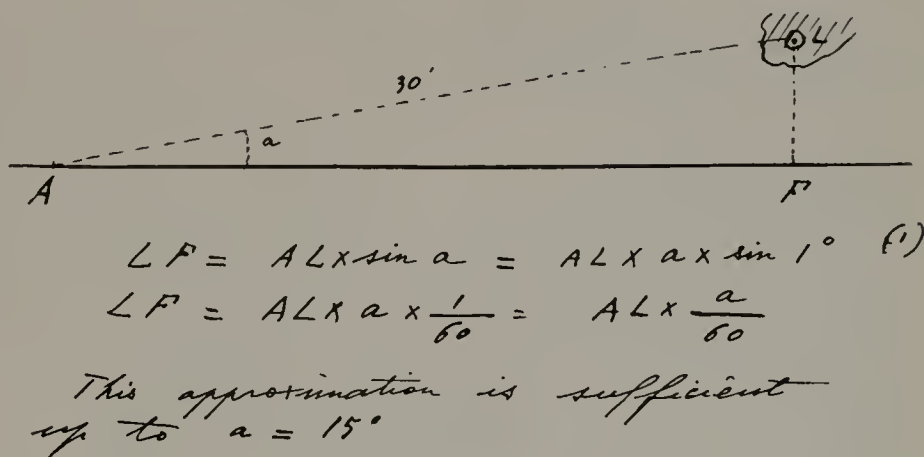 L
30'
a
A F
LF = AL x sin a = AL x a x sin 1° (1)
LF = AL x a x 1/60 = AL x a/60
This approximation is sufficient
up to a = 15°